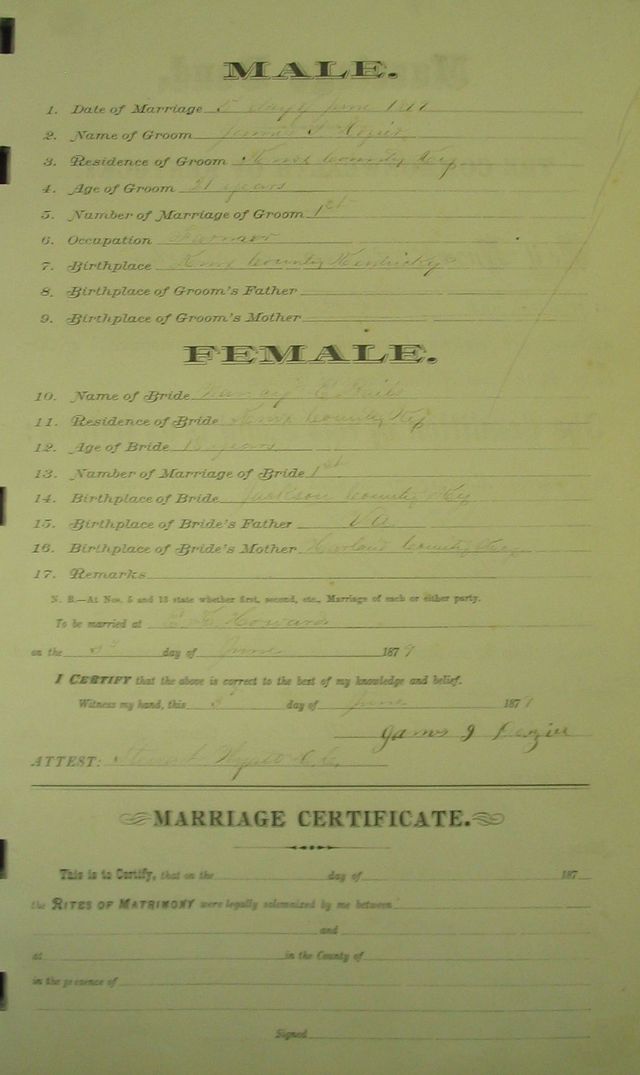 MALE.
1. Date of Marriage 5 day of June 1879
2. Name of Groom James
3. Residence of Groom Knox County Ky
4. Age of Groom 21 years
5. Number of Marriage of Groom 1st
6. Occupation Farmer
7. Birthplace Knox County Kentucky
8. Birthplace of Groom's Father
9. Birthplace of Groom's Mother
FEMALE.
10. Name of Bride Nancy E
11. Residence of Bride Knox County Ky
12. Age of Bride years
13. Number of Marriage of Bride 1st
14. Birthplace of Bride Jackson County Ky
15. Birthplace of Bride's Father Va.
16. Birthplace of Bride's Mother Harland County Ky
17. Remarks
N. B.—At Nos. 5 and 13 state whether first, second, etc., Marriage of each or either party.
To be married at Howard
on the 5 day of June 1879
I CERTIFY that the above is correct to the best of my knowledge and belief.
Witness my hand, this 5 day of June 1879
James J Dezier
ATTEST:
MARRIAGE CERTIFICATE.
This is to Certify, that on the day of 187
the RITES OF MATRIMONY were legally solemnized by me between
and
at in the County of
in the presence of
Signed